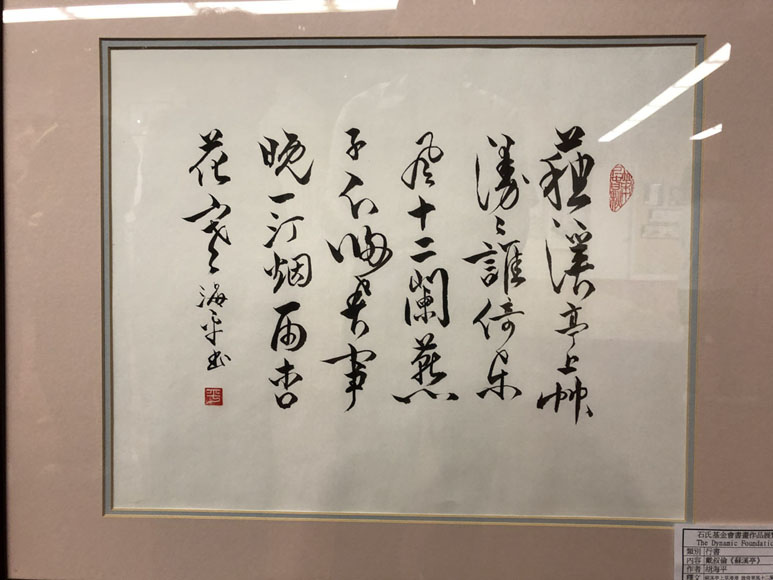 蘇溪亭上艸
漫〻誰倚東
風十二闌燕
子不歸春事
晚一汀烟雨杏
花寒 海平書
石氏基金會書畫作品展
The Dynamic Foundati
類別 行書
內容 戴叔倫《蘇溪亭》
作者 胡海平
釋文